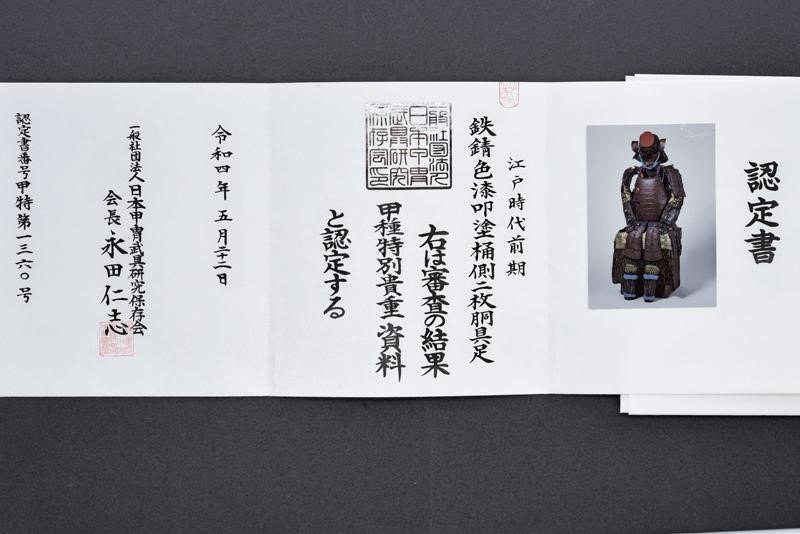 認定書
江戸時代前期
鉄錆色漆叩塗桶側二枚胴具足
右は審査の結果
甲種特別貴重資料
と認定する
令和四年 五月二十二日
一般社団法人日本甲冑武具研究保存会
会長 永田仁志
認定書番号甲特第一三六〇号